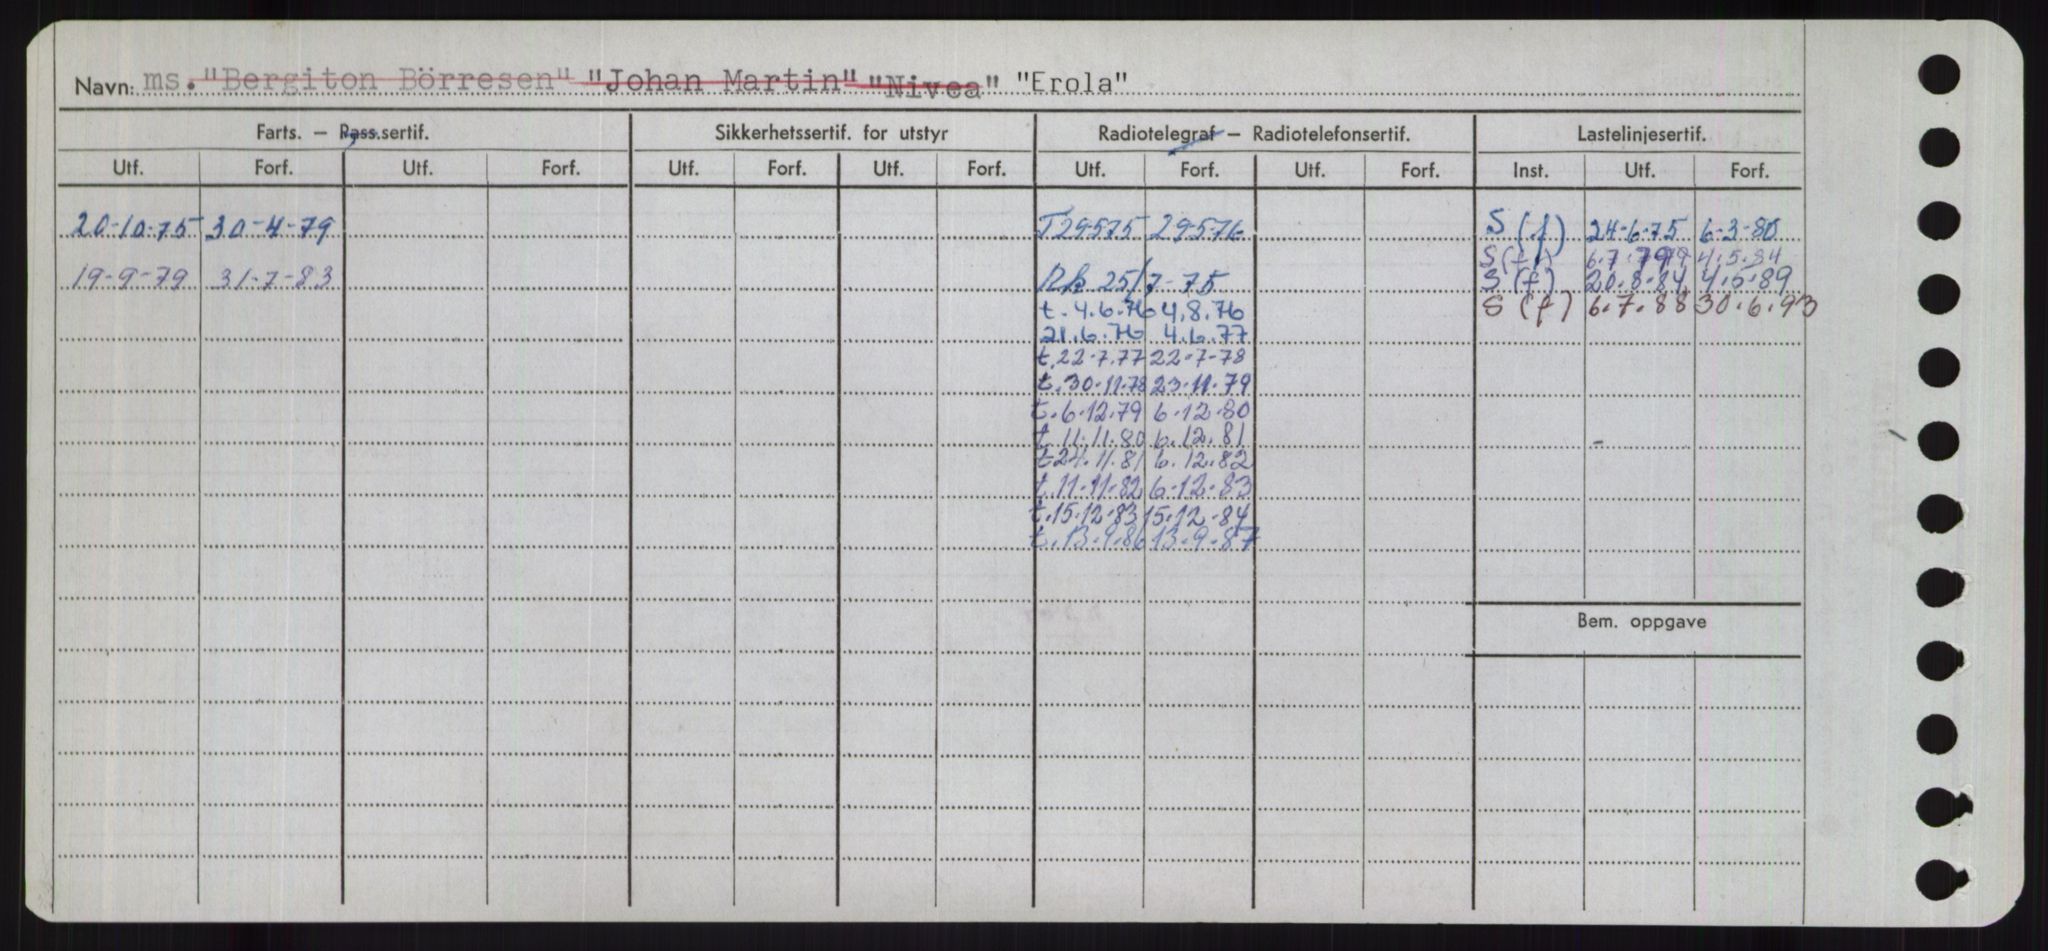 Navn: ms. "Bergiton Börresen" "Johan Martin" "Nivea" "Erola"
Farts. — Pass.sertif. Sikkerhetssertif. for utstyr Radiotelegraf — Radiotelefonsertif. Lastelinjesertif.
Utf. Forf. Utf. Forf. Utf. Forf. Utf. Forf. Utf. Forf. Utf. Forf. Inst. Utf. Forf.
20-10-75 30-4-79 T 29575 29-5-76 S (f) 24-6-75 6-3-80
S (f) 6.7.79 4.5.84
19-9-79 31-7-83 25/7-75 S (f) 20.8.84 4.5.89
t. 4.6.76 4.8.76 S (f) 6.7.88 30.6.93
21.6.76 4.6.77
t. 22-7.77 22-7-78
t. 30-11-78 23-11-79
t. 6-12-79 6-12-80
t. 11.11.80 6.12.81
t. 24.11.81 6.12.82
t. 11-11-82 6-12-83
t. 15-12-83 15-12-84
t. 13-9-86 13-9-87
Bem. oppgave